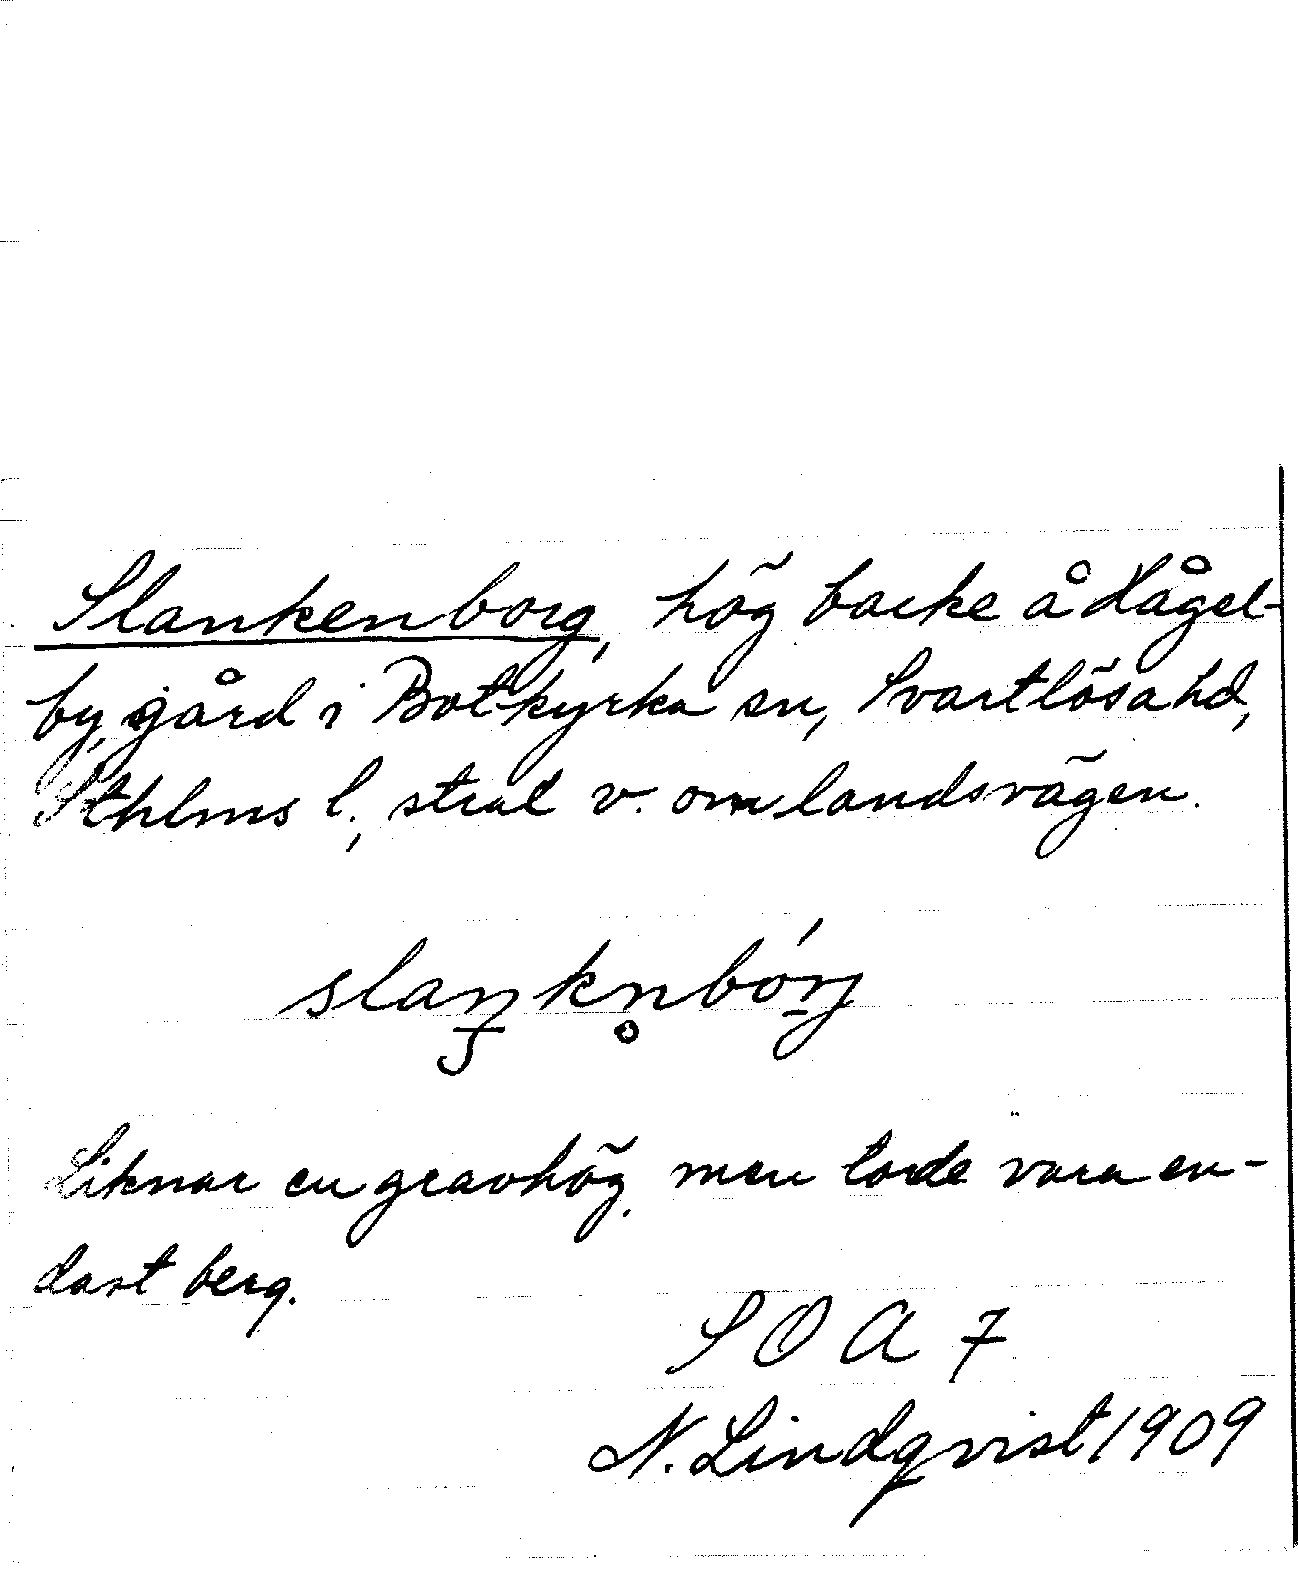 Slankenborg, hög backe å Hågel-
by gård i Botkyrka sn, Svartlösa hd,
Sthlms l., strax v. om landsvägen.
slaŋkn̥bórj
Liknar en gravhög, men torde vara en-
dast berg.
S O A 7
N. Lindqvist 1909